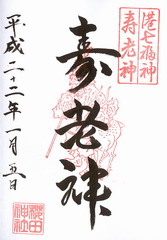 港七福神
寿老神
寿老神
平成二十二年一月五日
櫻田
神社